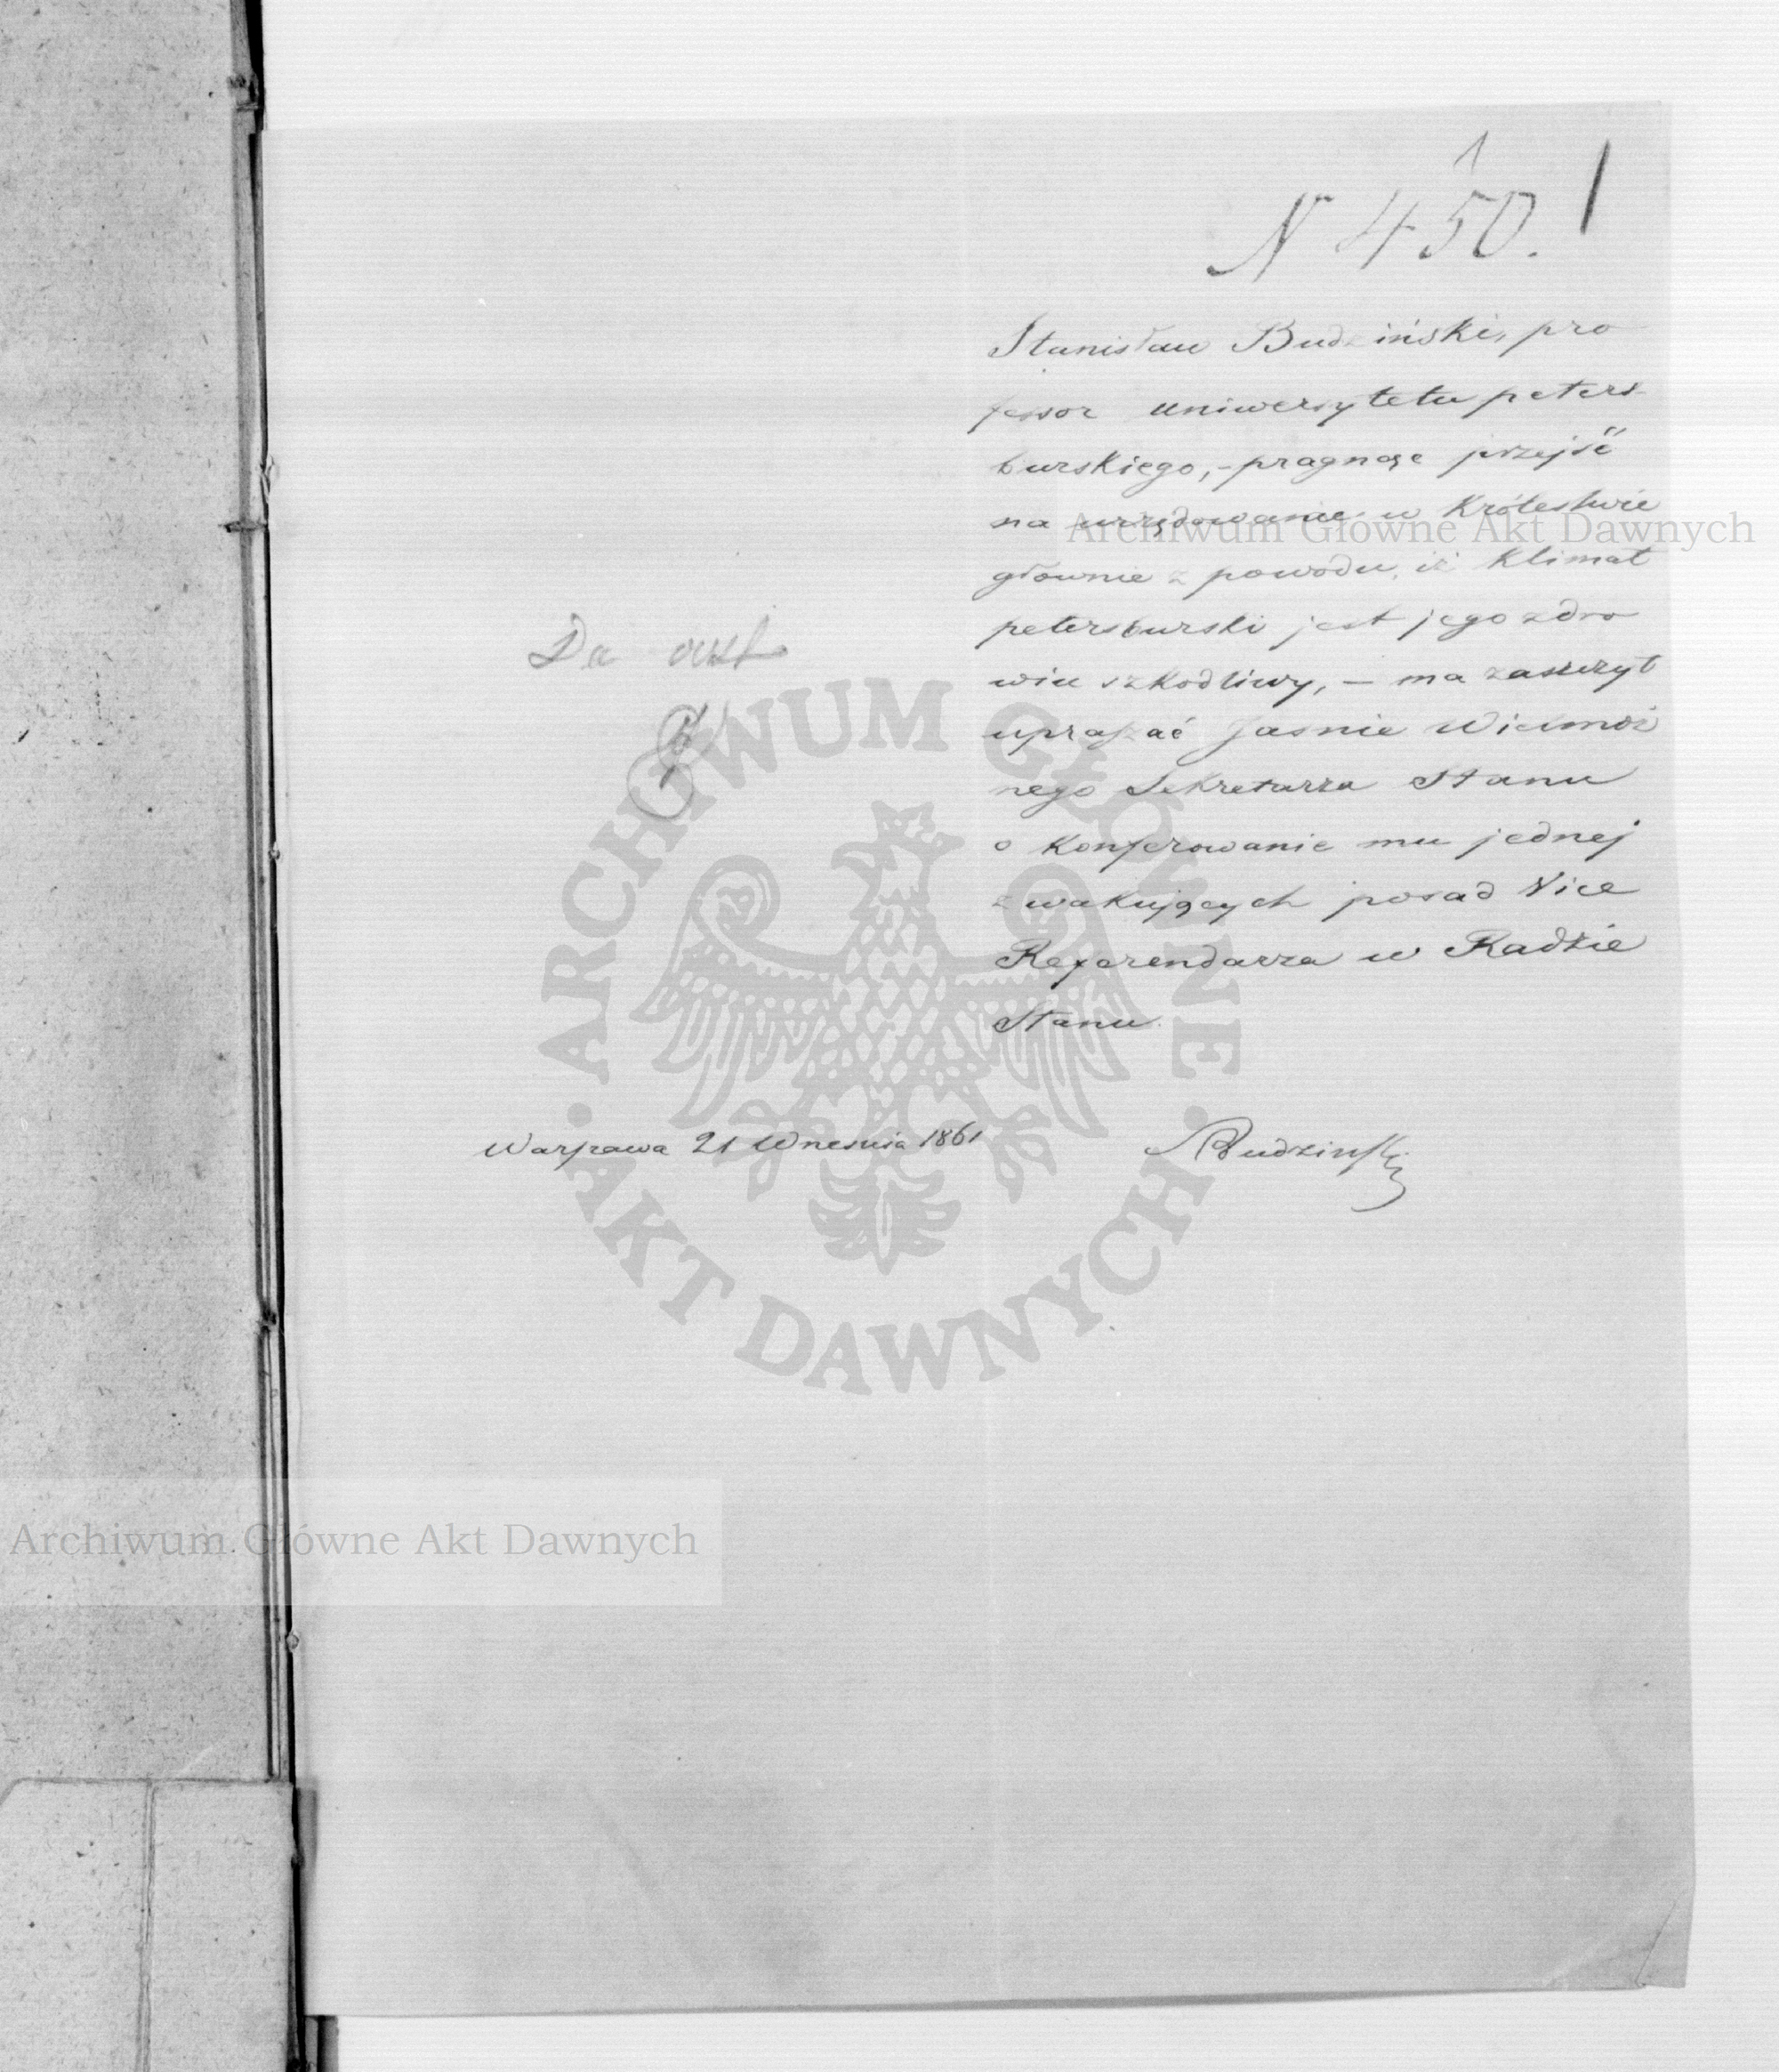 1
N 450. 1
Stanisław Budziński, pro
fessor uniwersytetu peters-
burskiego, - pragnąc przejść
na urzędowanie w Królestwie
głownie z powodu, iż klimat
petersburski jest jego zdro
wiu szkodliwy, — ma zaszczyt
upraszać Jasnie Wielmoż
nego Sekretarza Stanu
o konferowanie mu jednej
z wakujących posad Vice
Referendarza w Radzie
Stanu.
Do
Warszawa 21 Wrzesnia 1861
SBudziński
Archiwum Główne Akt Dawnych
ARCHIWUM GŁÓWNE
· AKT DAWNYCH ·
Archiwum Główne Akt Dawnych